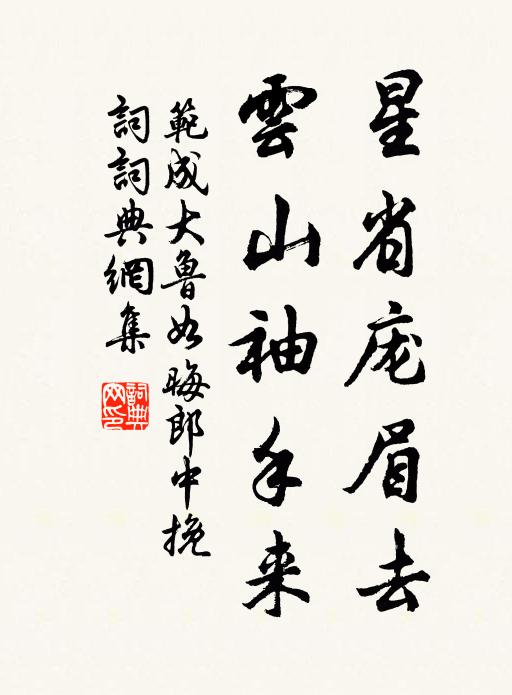 星省庞眉去
雲山袖手来
範成大魯如晦郎中挽
詞詞典網集
詞典網印